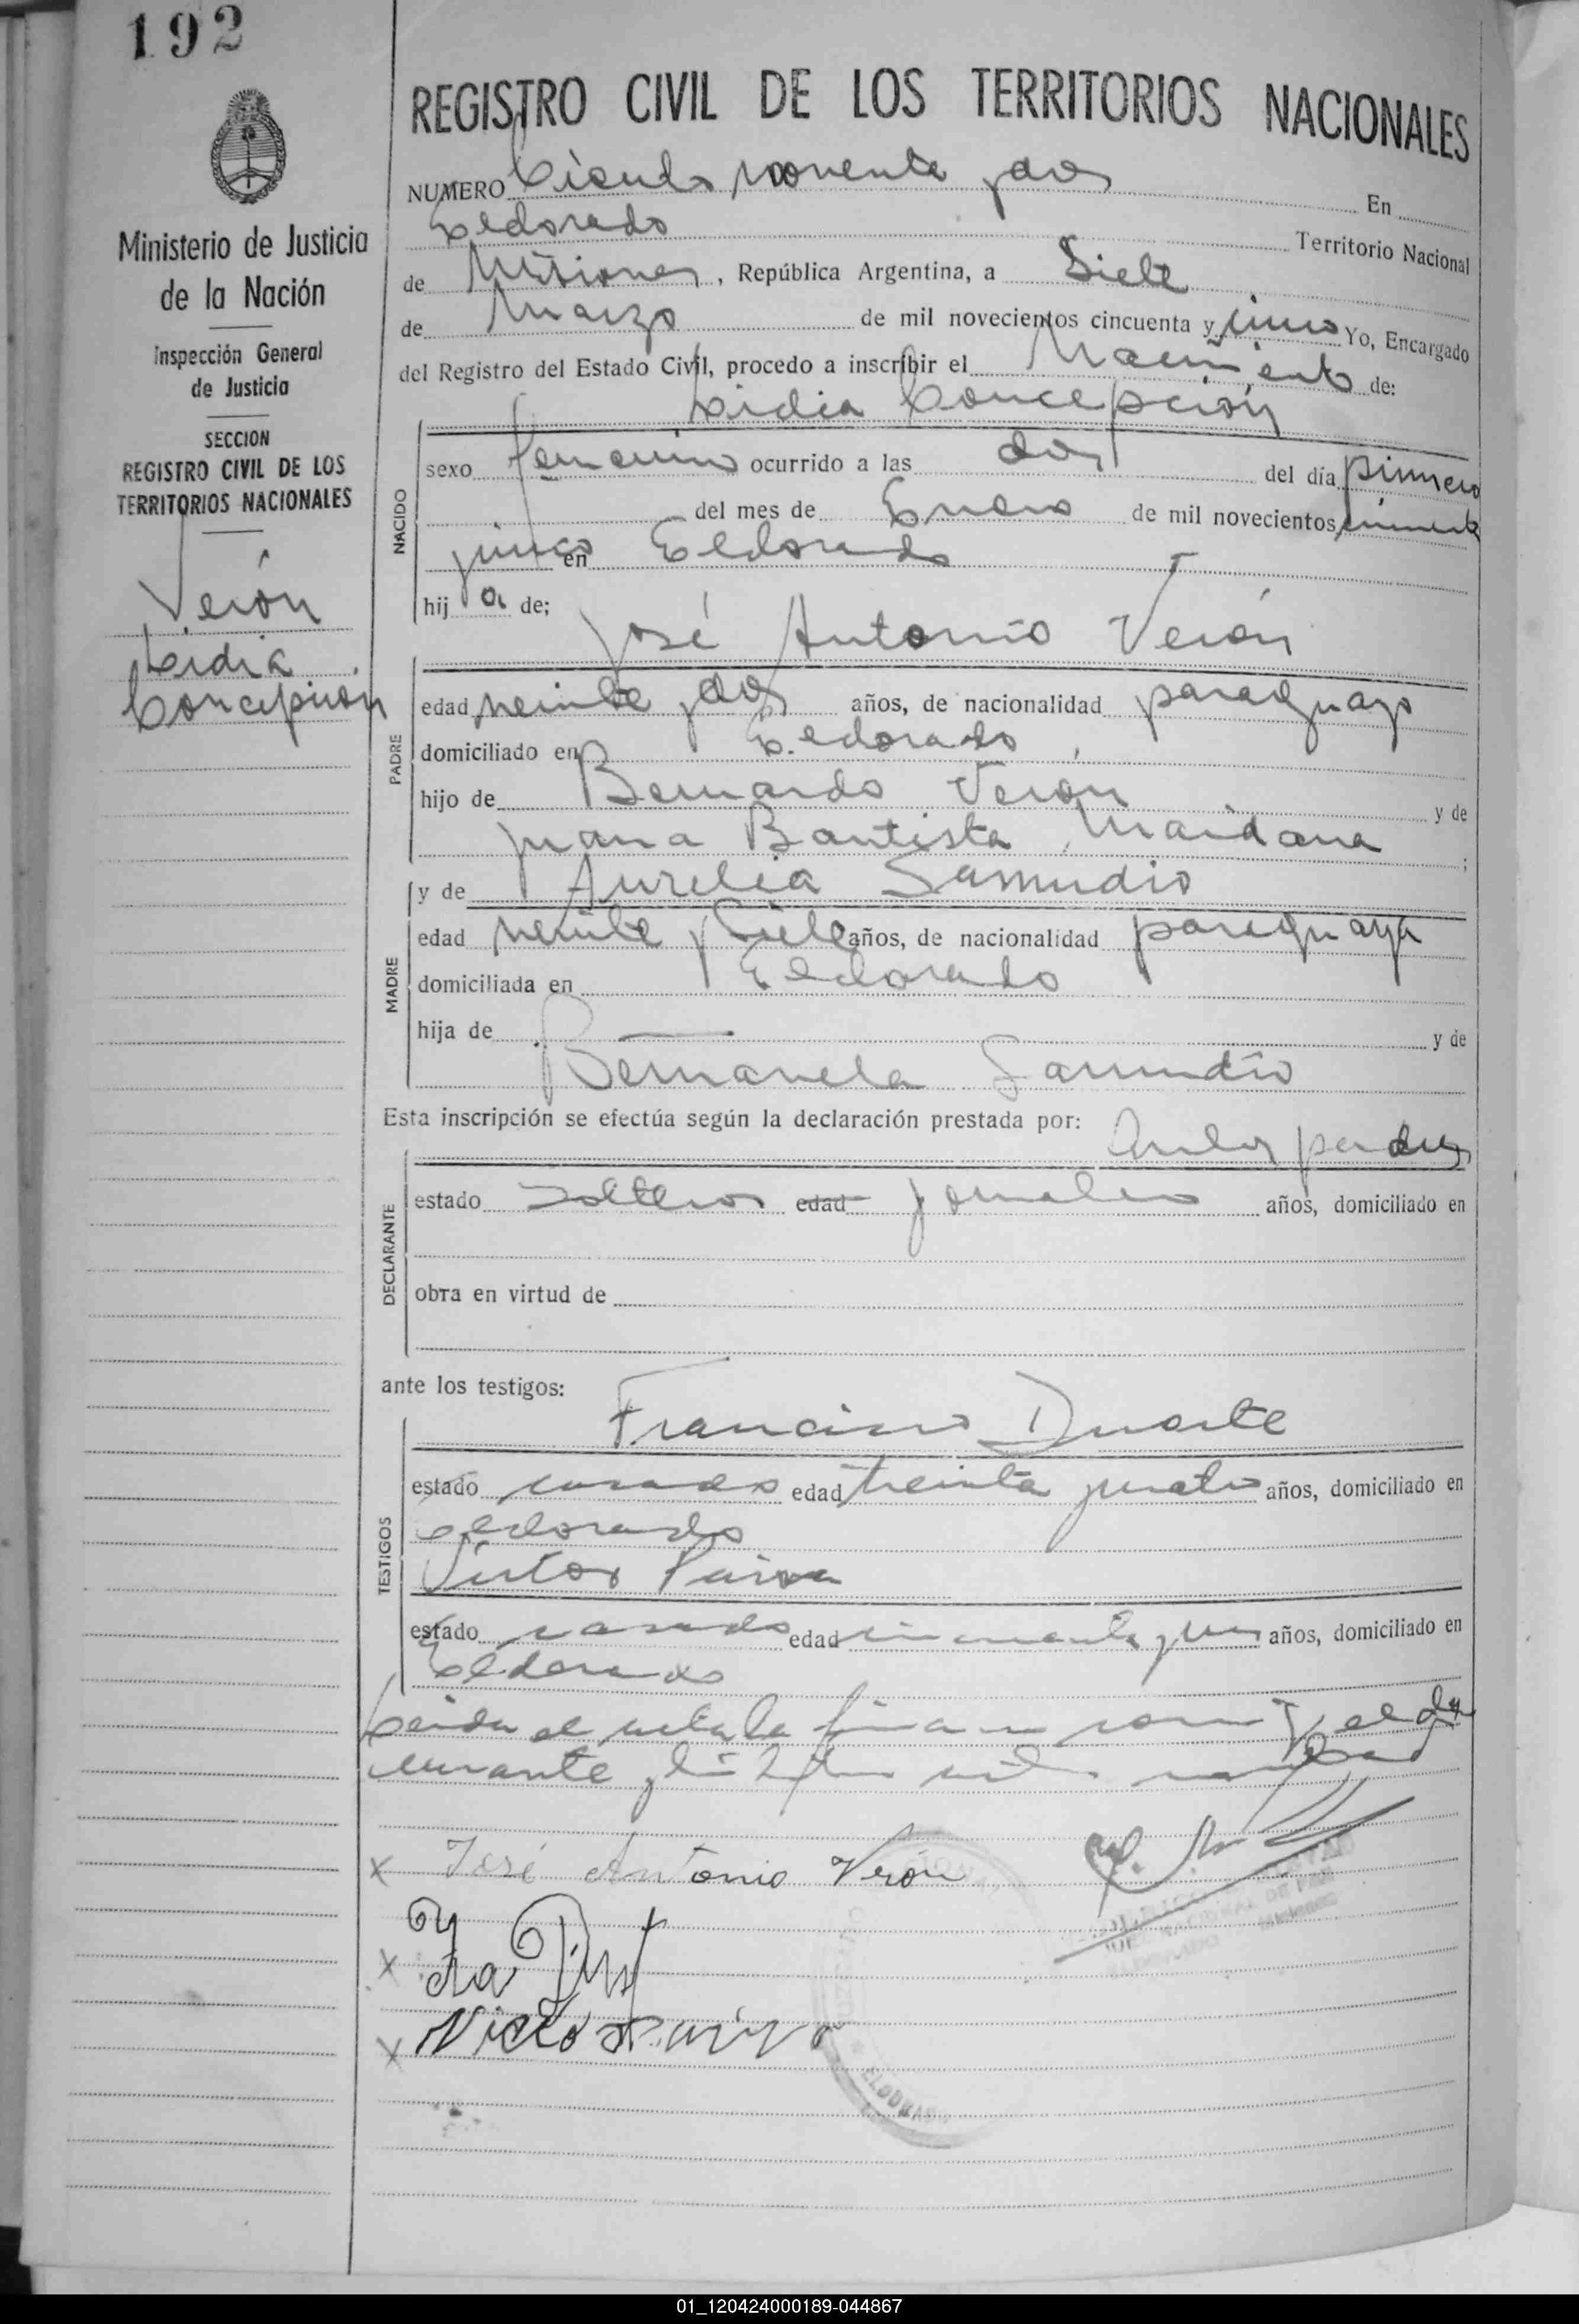 192
REGISTRO CIVIL DE LOS TERRITORIOS NACIONALES
Ministerio de Justicia
de la Nación
Inspección General
de Justicia
SECCION
REGISTRO CIVIL DE LOS
TERRITORIOS NACIONALES
Verón
Lidia
Concepción
NUMERO Ciento noventa y dos En
Eldorado Territorio Nacional
de Misiones, República Argentina, a Siete
de Marzo de mil novecientos cincuenta y cinco Yo, Encargado
del Registro del Estado Civil, procedo a inscribir el Nacimiento de:
Lidia Concepción
NACIDO
sexo femenino ocurrido a las dos del día primero
del mes de Enero de mil novecientos cincuenta
y cinco en Eldorado
hija de;
José Antonio Verón
PADRE
edad veinte y dos años, de nacionalidad paraguayo
domiciliado en Eldorado
hijo de Bernardo Verón y de
Juana Bautista Maidana;
y de Aurelia Samudio
MADRE
edad veinte y siete años, de nacionalidad paraguaya
domiciliada en Eldorado
hija de y de
Samudio
Esta inscripción se efectúa según la declaración prestada por:
Ambos padres
DECLARANTE
estado solteros edad jornalero años, domiciliado en
obra en virtud de
ante los testigos:
Francisco Duarte
TESTIGOS
estado casado edad treinta y cuatro años, domiciliado en
Eldorado
Victor Paiva
estado casado edad cincuenta y un años, domiciliado en
Eldorado
Leida el acta la firman conmigo el de
clarante y los testigos
x José Antonio Verón
x
x Victor Paiva
ELDORADO
01_120424000189-044867